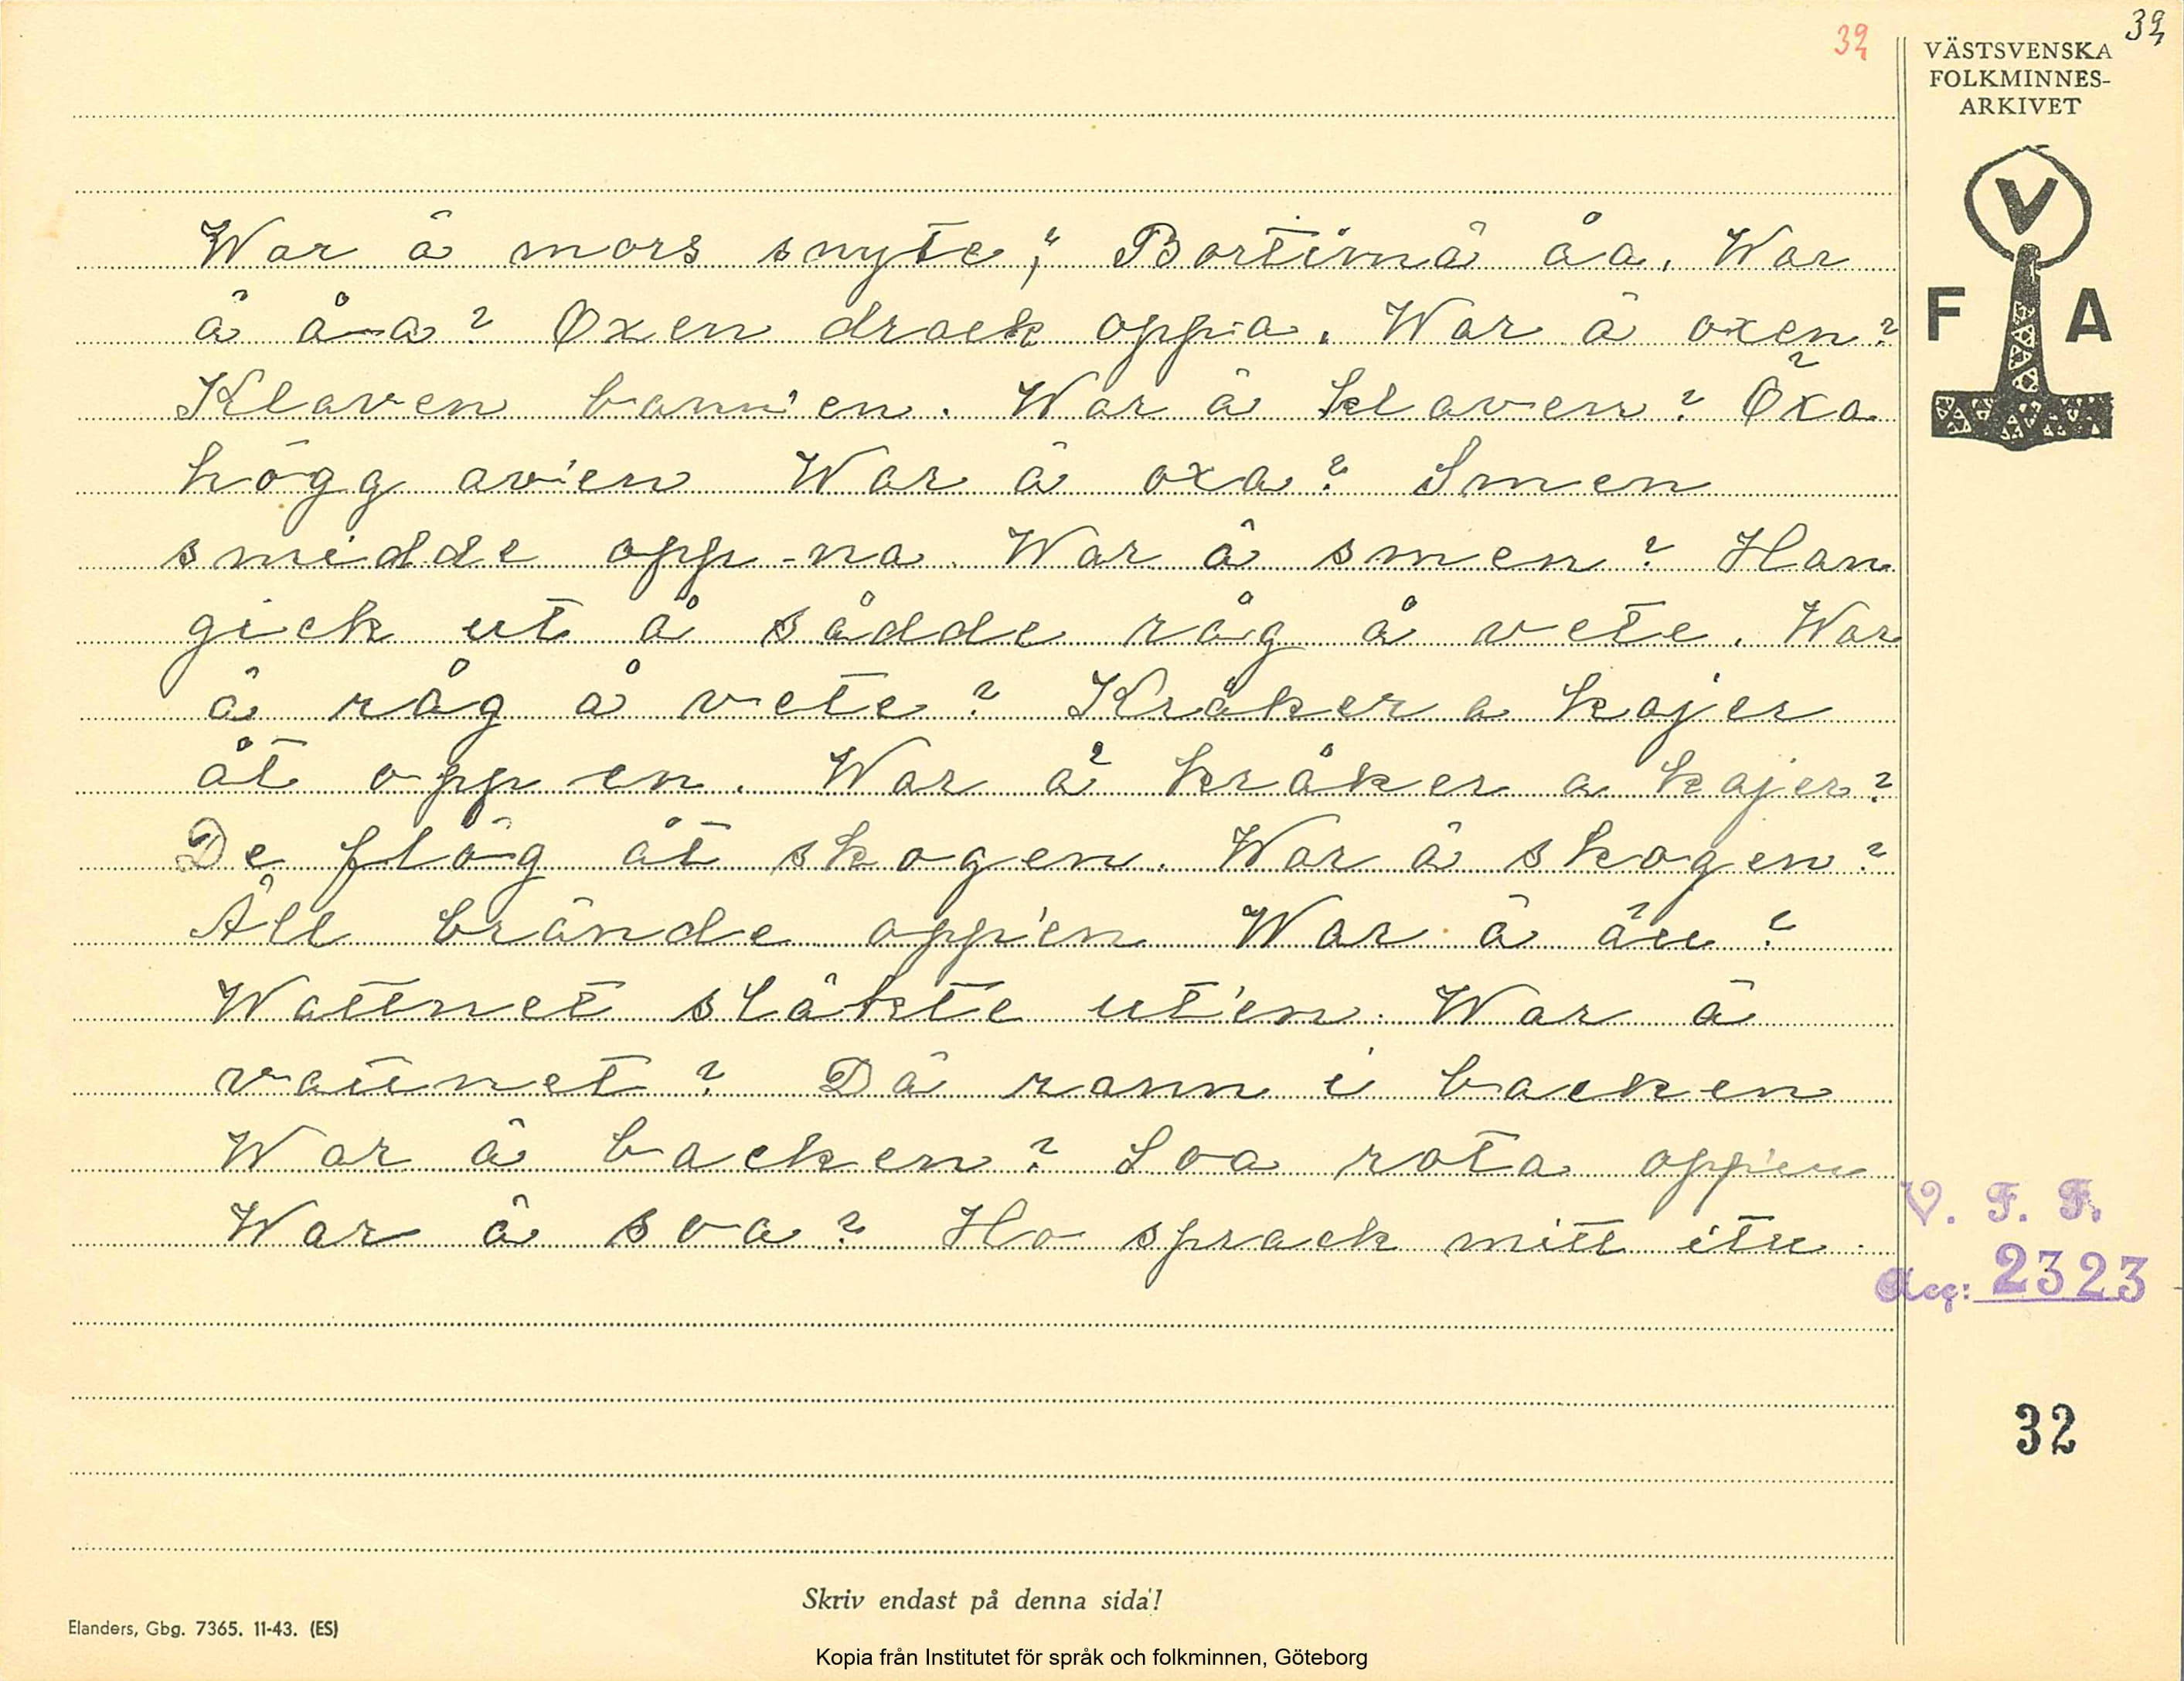 39
39
VÄSTSVENSKA
FOLKMINNES-
ARKIVET
V
F A
War ä mors snyte; Bortimä åa. War
ä å-a? Oxen drack oppa. War ä oxen?
Klaven bann'en. War ä klaven? Öxa
högg av'en War ä oxa? Smen
smidde opp-na. War ä smen? Han
gick ut å sådde råg å vete. War
ä råg å vete? Kråker a kajer
åt opp en. War ä kråker a kajer?
De flög åt skogen. War ä skogen?
Äll brände opp'en War ä äll?
Wattnet släkte ut'en. War ä
vattnet? Dä rann i backen
War ä backen? Soa rota opp'en
War ä soa? Ho sprack mitt itu.
V. F. F.
Acc: 2323
32
Skriv endast på denna sida!
Elanders, Gbg. 7365. 11-43. (ES)
Kopia från Institutet för språk och folkminnen, Göteborg